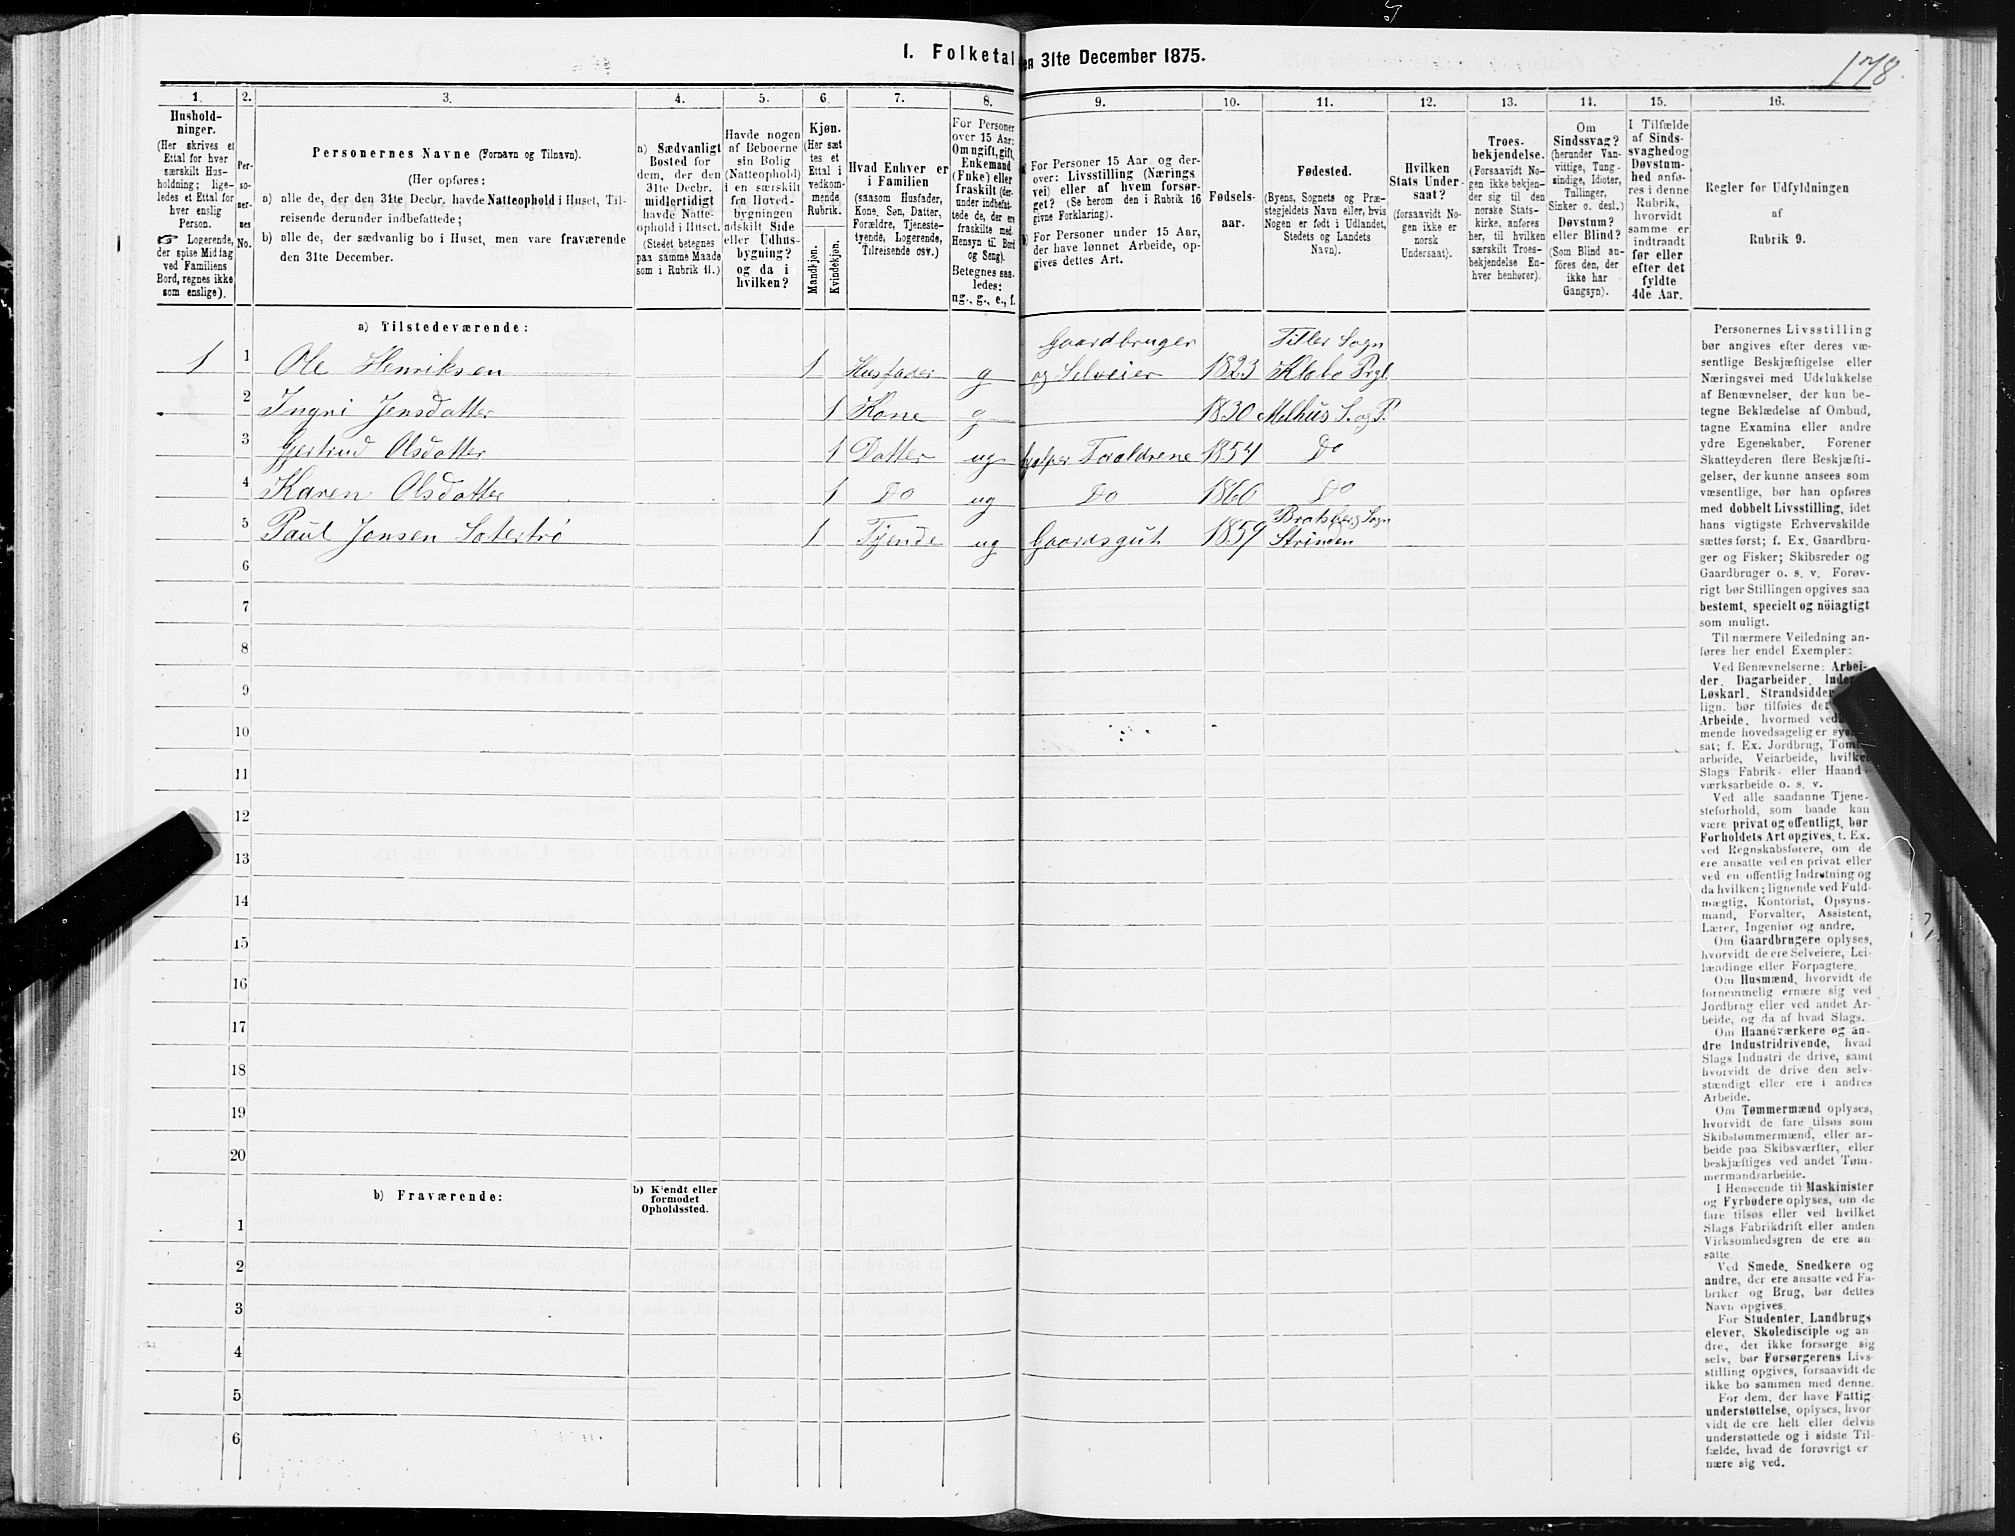 178.
I. Folketal
en 31te December 1875.
1.
2.
3.
4.
5.
6.
7.
8.
9.
10.
11.
12.
13.
14.
15.
16.
Hushold-
ninger.
(Her skrives et
Ettal for hver
særskilt Hus-
holdning; lige-
ledes et Ettal for
hver enslig
Person.
☞ Logerende,
der spise Middag
ved Familiens
Bord, regnes ikke
som enslige).
Per-
so-
ner-
nes
No.
Personernes Navne (Fornavn og Tilnavn).
(Her opføres:
a) alle de, der den 31te Decbr. havde Natteophold i Huset, Til-
reisende derunder indbefattede;
b) alle de, der sædvanlig bo i Huset, men vare fraværende
den 31te December.
a) Sædvanligt
Bosted for
dem, der den
31te Decbr.
midlertidigt
havde Natte-
ophold i Huset.
(Stedet betegnes
paa samme Maade
som i Rubrik 11.)
Havde nogen
af Beboerne
sin Bolig
(Natteophold)
i en særskilt
fra Hoved-
bygningen
adskilt Side
eller Udhus-
bygning?
og da i
hvilken?
Kjøn.
(Her sæt
tes et
Ettal i
vedkom-
mende
Rubrik.
Mandkjøn.
Kvindekjøn.
Hvad Enhver er
i Familien
(saasom Husfader,
Kone, Søn, Datter,
Forældre, Tjeneste-
tyende, Logerende,
Tilreisende osv.)
For Personer
over 15 Aar:
Om ugift, gift,
Enkemand
(Enke) eller
fraskilt (der-
under indbefat-
tede de, der ere
fraskilte med
Hensyn til Bord
og Seng).
Betegnes saa-
ledes:
ug., g., e., f.
For Personer 15 Aar og der-
over: Livsstilling (Nærings
vei) eller af hvem forsør-
get? (Se herom den i Rubrik 16
givne Forklaring).
For Personer under 15 Aar,
der have lønnet Arbeide, op-
gives dettes Art.
Fødsels-
aar.
Fødested.
(Byens, Sognets og Præ-
stegjeldets Navn eller, hvis
Nogen er født i Udlandet,
Stedets og Landets
Navn).
Hvilken
Stats Under-
saat?
(forsaavidt No-
gen ikke er
norsk
Undersaat).
Troes-
bekjendelse.
(Forsaavidt No-
gen ikke bekjen-
der sig til den
norske Stats-
kirke, anføres
her, til hvilken
særskilt Troes-
bekjendelse En-
hver henhører).
Om
Sindssvag?
(herunder Van-
vittige, Tung-
sindige, Idioter,
Tullinger,
Sinker o. desl.)
Døvstum?
eller Blind?
(Som Blind an-
føres den, der
ikke har
Gangsyn).
I Tilfælde
af Sinds-
svaghed og
Døvstum-
hed anfø-
res i denne
Rubrik,
hvorvidt
samme er
indtraadt
før eller
efter det
fyldte
4de Aar.
Regler for Udfyldningen
af
Rubrik 9.
a) Tilstedeværende:
1 1 Ole Henriksen 1 Husfader g Gaardbruger og Selveier 1823 Tiller Sogn Klæbo Prgl.
2 Ingri Jensdatter 1 Kone g 1830 Melhus S. og P.
3 Gjertrud Olsdatter 1 Datter ug hjælper Forældrene 1854 Do
4 Karen Olsdatter 1 Do ug Do 1860 Do
5 Paul Jonsen 1 Tjende ug Gaardsgut 1859 Bratsberg Sogn Strinden
6
7
8
9
10
11
12
13
14
15
16
17
18
19
20
b) Fraværende:
b) Kjendt eller
formodet
Opholdssted.
1
2
3
4
5
6
Personernes Livsstilling
bør angives efter deres væ-
sentlige Beskjæftigelse eller
Næringsvei med Udelukkelse
af Benævnelser, der kun be-
tegne Beklædelse af Ombud,
tagne Examina eller andre
ydre Egenskaber. Forener
Skatteyderen flere Beskjæfti-
gelser, der kunne ansees som
væsentlige, bør han opføres
med dobbelt Livsstilling, idet
hans vigtigste Erhvervskilde
sættes først; f. Ex. Gaardbru-
ger og Fisker; Skibsreder og
Gaardbruger o. s. v. Forøv-
rigt bør Stillingen opgives saa
bestemt, specielt og nöiagtigt
som muligt.
Til nærmere Veiledning an-
føres her endel Exempler:
Ved Benævnelserne: Arbei-
der, Dagarbeider, Inder
Løskarl, Strandsidder
lign. bør tilføies det
Arbeide, hvormed ved
mende hovedsagelig er sys
sat; f. Ex. Jordbrug, Tom
arbeide, Veiarbeide, hvilket
Slags Fabrik- eller Haand-
værksarbeide o. s. v.
Ved alle saadanne Tjene-
steforhold, som baade kan
være privat og offentligt, bør
Forholdets Art opgives, t. Ex.
ved Regnskabsførere, om de
ere ansatte ved en privat eller
ved en offentlig Indretning og
da hvilken; lignende ved Fuld-
mægtig, Kontorist, Opsyns-
mand, Forvalter, Assistent,
Lærer, Ingeniør og andre.
Om Gaardbrugere oplyses,
hvorvidt de ere Selveiere, Lei-
lændinge eller Forpagtere.
Om Husmænd, hvorvidt de
fornemmelig ernære sig ved
Jordbrug eller ved andet Ar-
beide, og da af hvad Slags.
Om Haandværkere og an-
dre Industridrivende, hvad
Slags Industri de drive, samt
hvorvidt de drive den selv-
stændigt eller ere i andres
Arbeide.
Om Tømmermænd oplyses,
hvorvidt de fare tilsøs som
Skibstømmermænd, eller ar-
beide paa Skibsværfter, eller
beskjæftiges ved andet Tøm-
mermandsarbeide.
I Henseende til Maskinister
og Fyrbødere oplyses, om de
fare tilsøs eller ved hvilket
Slags Fabrikdrift eller anden
Virksomhedsgren de ere an-
satte.
Ved Smede, Snedkere og
andre, der ere ansatte ved Fa-
briker og Brug, bør dettes
Navn opgives.
For Studenter, Landbrugs
elever, Skoledisciple og an-
dre, der ikke forsørge sig
selv, bør Forsørgerens Livs-
stilling opgives, forsaavidt de
ikke bo sammen med denne.
For dem, der have Fattig
understøttelse, oplyses, hvor
vidt de ere helt eller delvis
understøttede og i sidste Til-
fælde, hvad de forøvrigt er
nære sig ved.